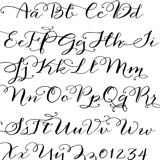 Aa Bb Cc Dd
Ee Ff Gg Hh Ii
Jj Kk Ll Mm
Nn Oo Pp Qq Rr
Ss Tt Uu Vv Ww
Xx Yy Zz 01234